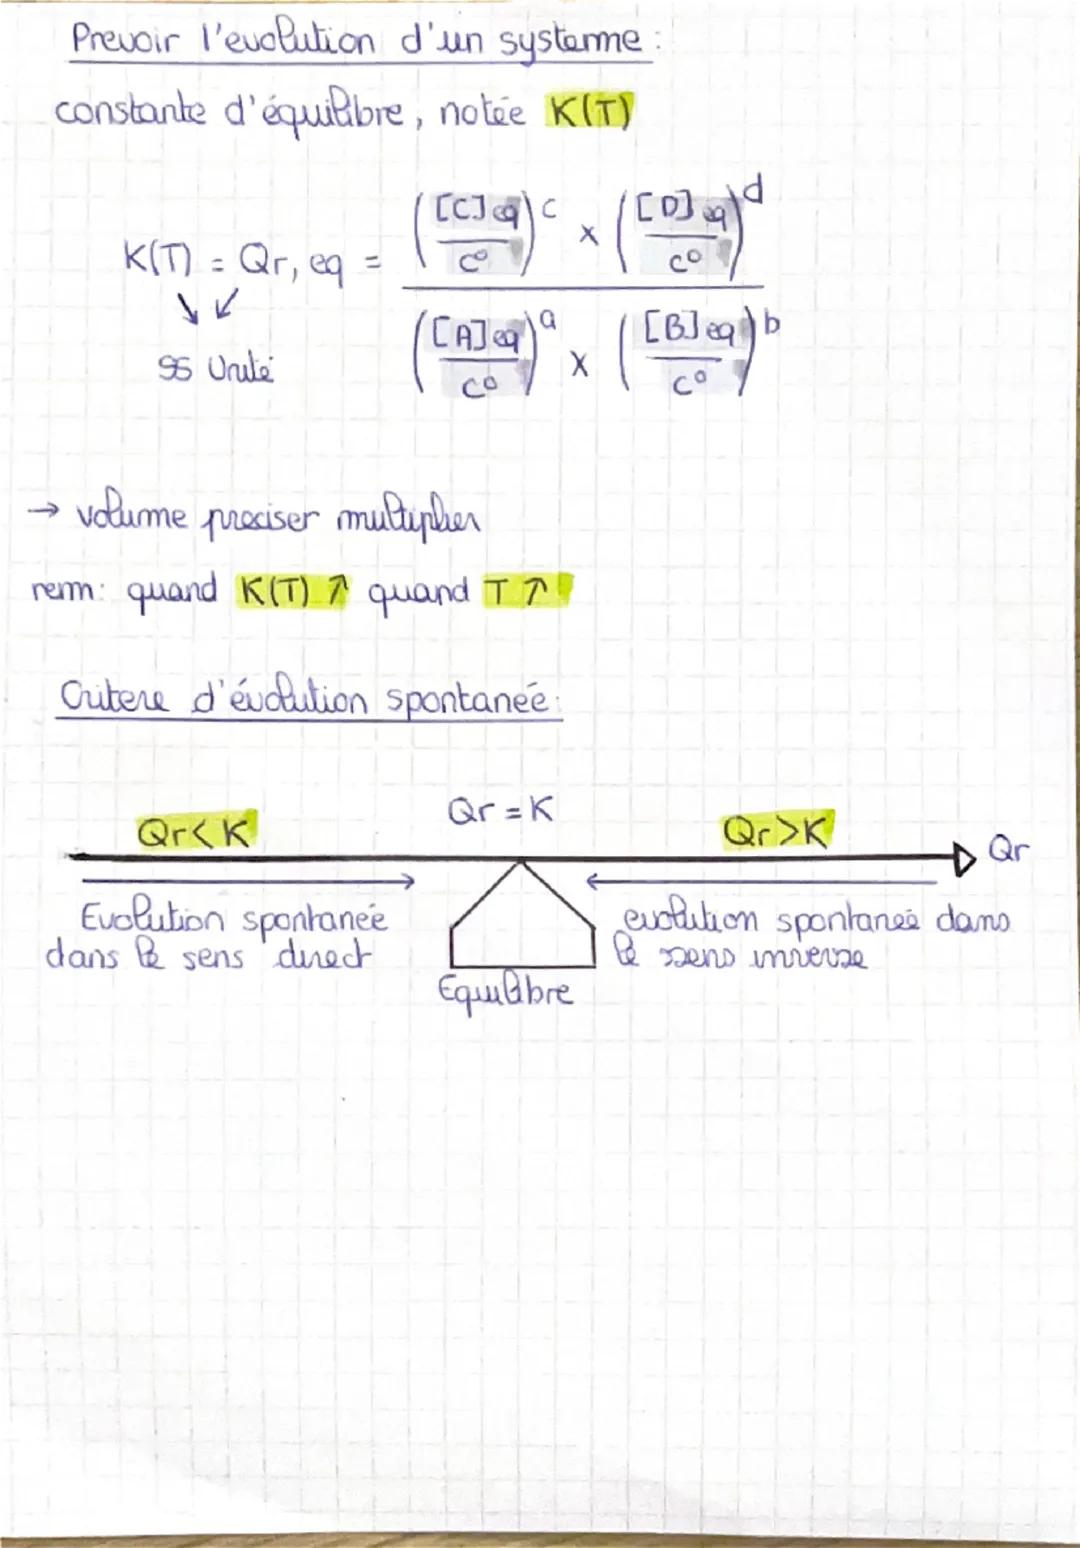 Prevoir l'evolution d'un systeme :
constante d'équilibre, notée K(T)
K(T) = Qr, eq = (([C]eq / c°)^c × ([D]eq / c°)^d) / (([A]eq / c°)^a × ([B]eq / c°)^b)
ss Unité
→ volume preciser multiplier
rem: quand K(T) ↗ quand T ↗
Critere d'évolution spontanée :
Qr < K
Qr = K
Qr > K
Qr
Evolution spontanée
dans le sens direct
Equilibre
evolution spontanée dans
le sens inverse